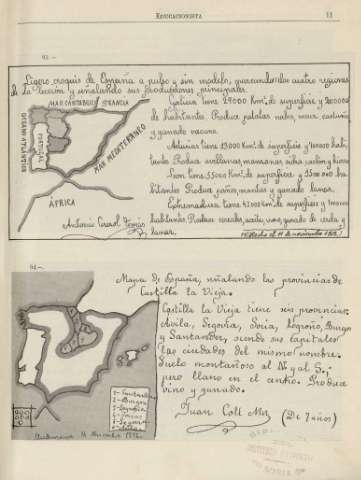 EDUCACIONISTA 11
93.—
Ligero croquis de España a pulso y sin modelo, marcando las cuatro regiones
de la lección y señalando sus producciones principales.
MAR CANTABRICO FRANCIA
OCEANO ATLANTICO
PORTUGAL
MAR MEDITERRÁNEO
ÁFRICA
Galicia tiene 29000 Km². de superficie y 2000000
de habitantes. Produce patatas nabos, maiz, castañas
y ganado vacuno.
Asturias tiene 19000 Km². de superficie y habi-
tantes Produce avellanas, manzanas, sidra, carbon y hierro
León tiene 55000 Km². de superficie y ha-
bitantes Produce paños, mantas y ganado lanar.
Extremadura tiene 42000 Km². de superficie y
habitantes. Produce cereales, aceite, vino, ganado de cerda y
lanar.
Antonio
Hecho el 11 de noviembre 1912
94.—
Mapa de España, señalando las provincias de
Castilla la Vieja.
Castilla la Vieja tiene seis provincias:
Avila, Segovia, Soria, Logroño, Burgos
y Santander, siendo sus capitales
las ciudades del mismo nombre.
Suelo montañoso al N. y al S.,
pero llano en el centro. Produce
vino y ganado.
Juan Coll Mas (De 7 años)
1 - Santander
2 - Burgos
3 - Logroño
4 - Soria
5 - Segovia
6 - Avila
Noviembre 1912